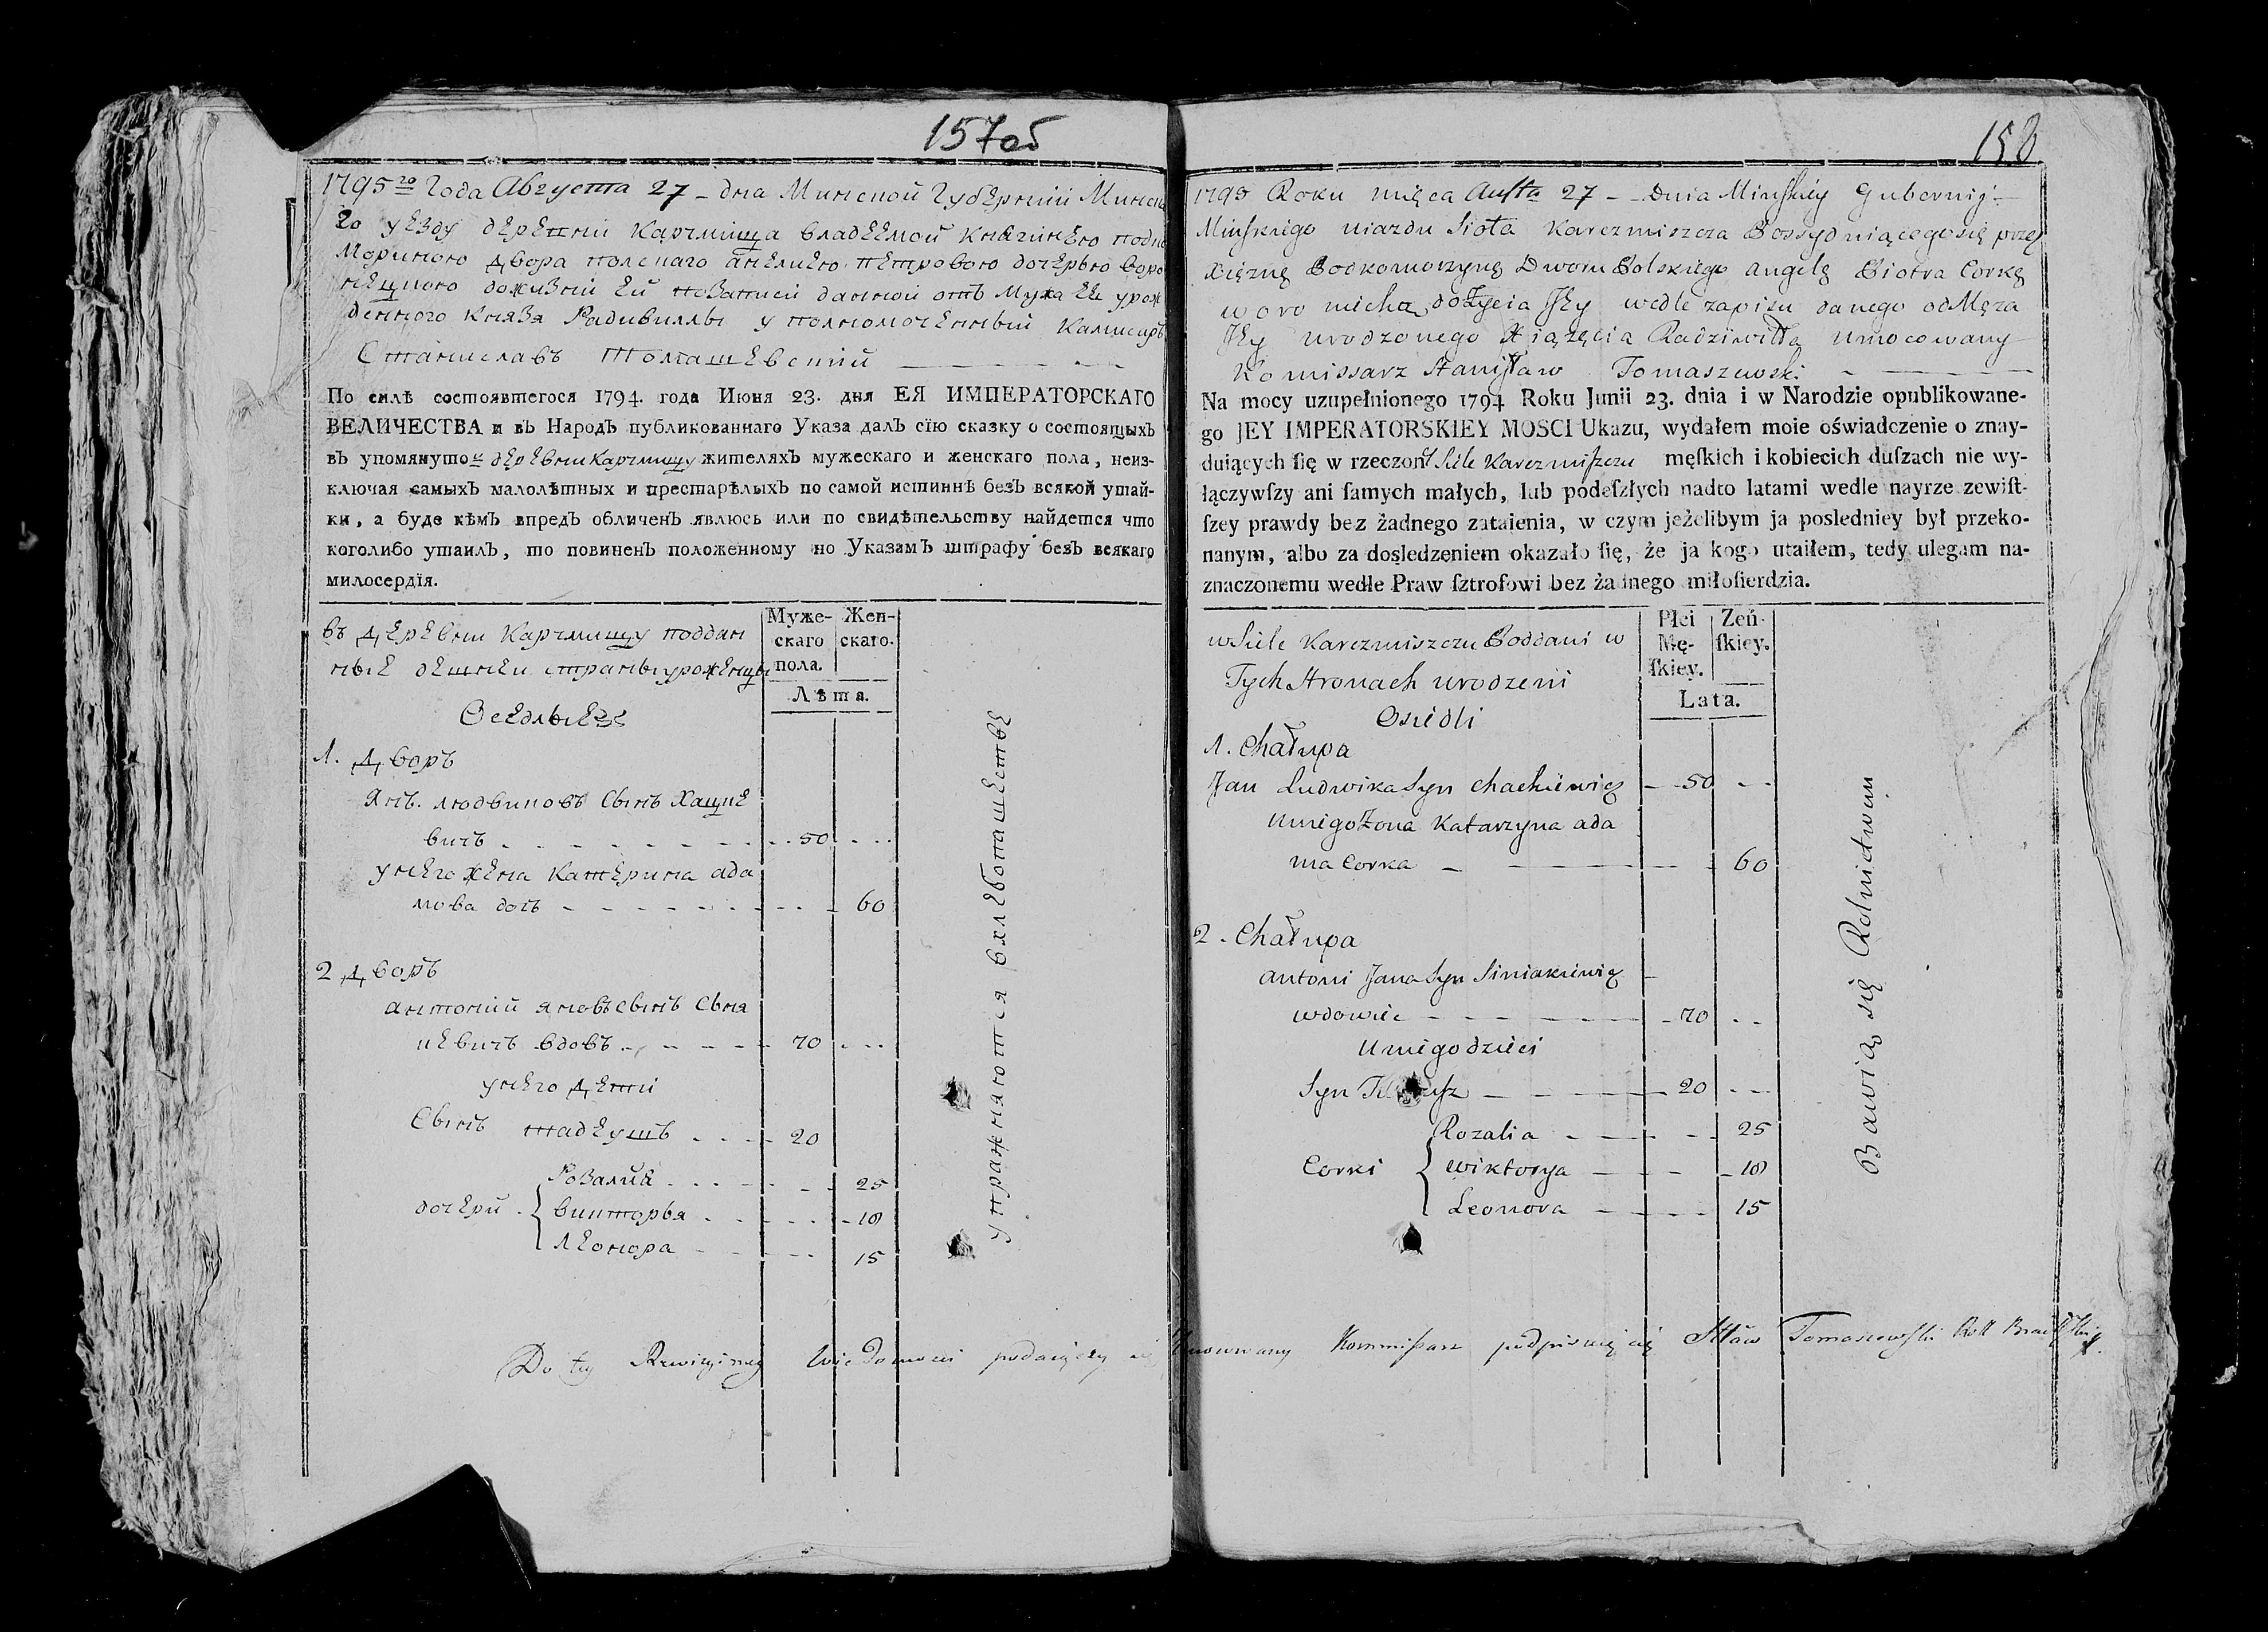 157об
1795го Года Августа 27 – дня Минской Губернии Минска
го уезду деревни Карчмища владеемой княгинею подко
Мориною двора полскаго анелиею петровою дочерью воро
нецкою до жизни ей по записи данной отъ Мужа Ее урож
денного Князя Радивиллы уполномоченный Камисаръ
Станиславъ Томашевский
По силѣ состоявшегося 1794. года Июня 23. дня ЕЯ ИМПЕРАТОРСКАГО
ВЕЛИЧЕСТВА и въ Народъ публикованнаго Указа далъ сїю сказку о состоящыхъ
въ упомянутой деревни Карчмищу жителяхъ мужескаго и женскаго пола, неиз-
ключая самыхъ малолѣтныхъ и престарѣлыхъ по самой истиннѣ безъ всякой утай-
ки, а буде кѣмъ впредъ обличенъ явлюсь или по свидѣтельству найдется что
коголибо утаилъ, то повиненъ положенному по Указамъ штрафу безъ всякаго
милосердїя.
въ деревни Карчмищу поддан
ные дешнеи страны уроженцы
Муже-
скаго
пола.
Жен-
скаго.
Лѣта.
Оседлые
1. дворъ
Янъ людвиковъ сынъ Хацке
вичъ 50
у него жена Катерина ада
мова дочь 60
2 дворъ
антоний яновъ сынъ Сыня
кевичъ вдовъ 70
у него дети
Сынъ тадеушъ 20
дочери
Розалия 25
викторья 18
леонора 15
упражняются в хлебопашестве
158
1795 Roku mięca Austa 27 – Dnia Minskiey Gubernij
Minskiego uiazdu Sioła Karczmiszcza Possydniącego się przez
Xięznę Podkomorzynę Dworu Polskiego angelę Piotra Corkę
woronicka dożycia Jey wedle zapisu danego od Męza
Jey urodzonego Xiążęcia Radziwiłła umocowany
Komissarz Stanisław Tomaszewski
Na mocy uzupełnionego 1794 Roku Junii 23. dnia i w Narodzie opublikowane-
go JEY IMPERATORSKIEY MOSCI Ukazu, wydałem moie oświadczenie o znay-
duiących ſię w rzeczony Siele Karczmiszczu męſkich i kobiecich duſzach nie wy-
łączywſzy ani ſamych małych, lub podeſzłych nadto latami wedle nayrze zewiſt-
ſzey prawdy bez żadnego zataienia, w czym jeżelibym ja posledniey był przeko-
nanym, albo za dosledzeniem okazało ſię, że ja kogo utaiłem, tedy ulegam na-
znaczonemu wedle Praw ſztrofowi bez żadnego miłoſierdzia.
w Siele Karczmiszczu Poddani w
Tych Stronach urodzeni
Płci
Mę-
ſkiey.
Zeń-
ſkiey.
Lata.
Osiedli
1. Chałupa
Jan Ludwika Syn Chackiewicz 50
u niego Zona Katarzyna ada
ma Corka 60
2. Chałupa
Antoni Jana Syn Siniakiewicz
wdowiec 70
u niego dzieci
Syn 20
Corki
Rozalia 25
Wiktorya 18
Leonora 15
Bawią się Rolnictwem
Do tey Rewizyiney Wiedomosci podaiący się Umocowany Kommissarz podpisuię się Stław Tomaszewski